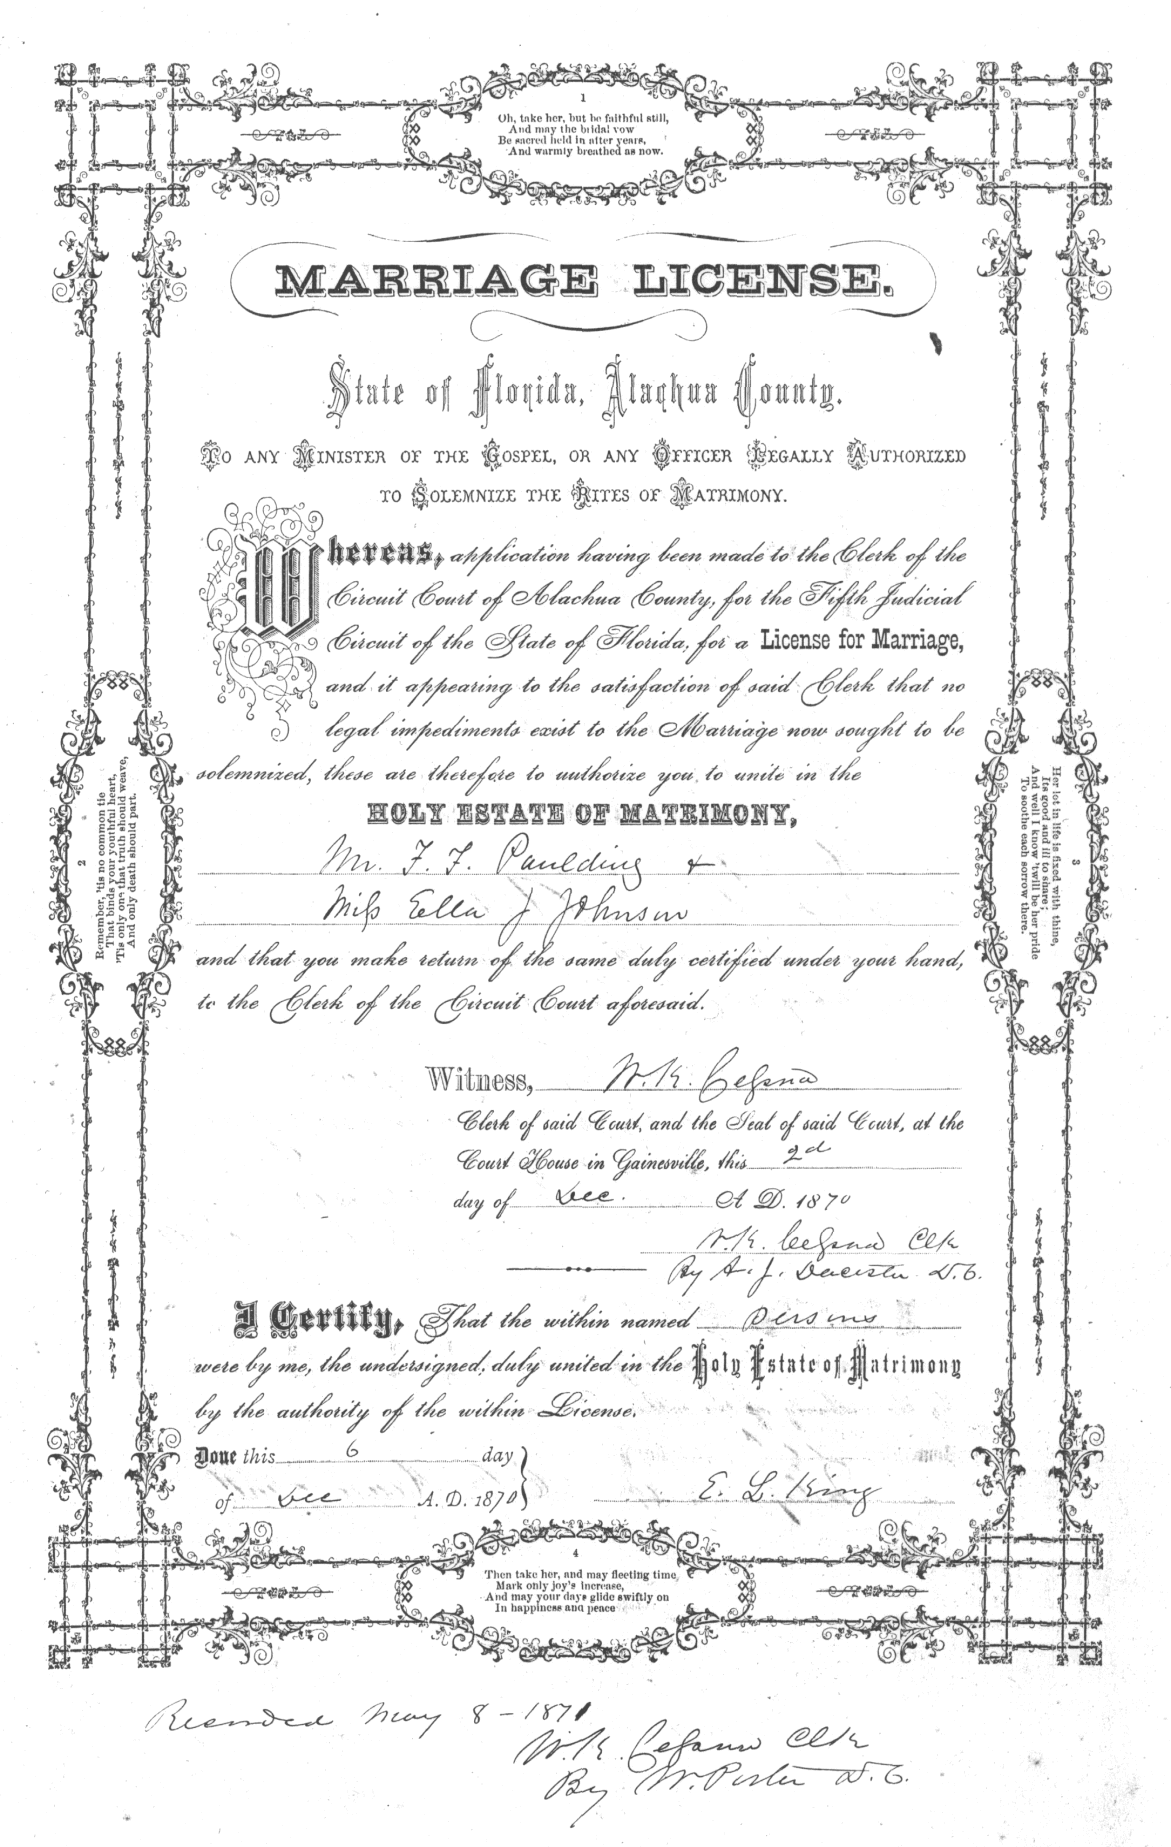 1
Oh, take her, but be faithful still,
And may the bridal vow
Be sacred held in after years,
And warmly breathed as now.
MARRIAGE LICENSE.
State of Florida, Alachua County.
TO ANY MINISTER OF THE GOSPEL, OR ANY OFFICER LEGALLY AUTHORIZED
TO SOLEMNIZE THE RITES OF MATRIMONY.
Whereas, application having been made to the Clerk of the
Circuit Court of Alachua County, for the Fifth Judicial
Circuit of the State of Florida, for a License for Marriage,
and it appearing to the satisfaction of said Clerk that no
legal impediments exist to the Marriage now sought to be
solemnized, these are therefore to authorize you to unite in the
HOLY ESTATE OF MATRIMONY,
Mr. F. F. Paulding &
Miss Ella J Johnson
and that you make return of the same duly certified under your hand,
to the Clerk of the Circuit Court aforesaid.
Witness, W. K. Cessna
Clerk of said Court, and the Seal of said Court, at the
Court House in Gainesville, this 2d
day of Dec. A. D. 1870
W. K. Cessna Clk
By A. J. D. C.
I Certify, That the within named persons
were by me, the undersigned, duly united in the Holy Estate of Matrimony
by the authority of the within License.
Done this 6 day
of Dec A. D. 1870
E. L. King
2
Remember, 'tis no common tie
That binds your youthful heart,
'Tis only one that truth should weave,
And only death should part.
3
Her lot in life is fixed with thine,
Its good and ill to share;
And well I know 'twill be her pride
To soothe each sorrow there.
4
Then take her, and may fleeting time
Mark only joy's increase,
And may your days glide swiftly on
In happiness and peace
Recorded May 8 - 1871
W. K. Cessna Clk
By W. Porter D. C.